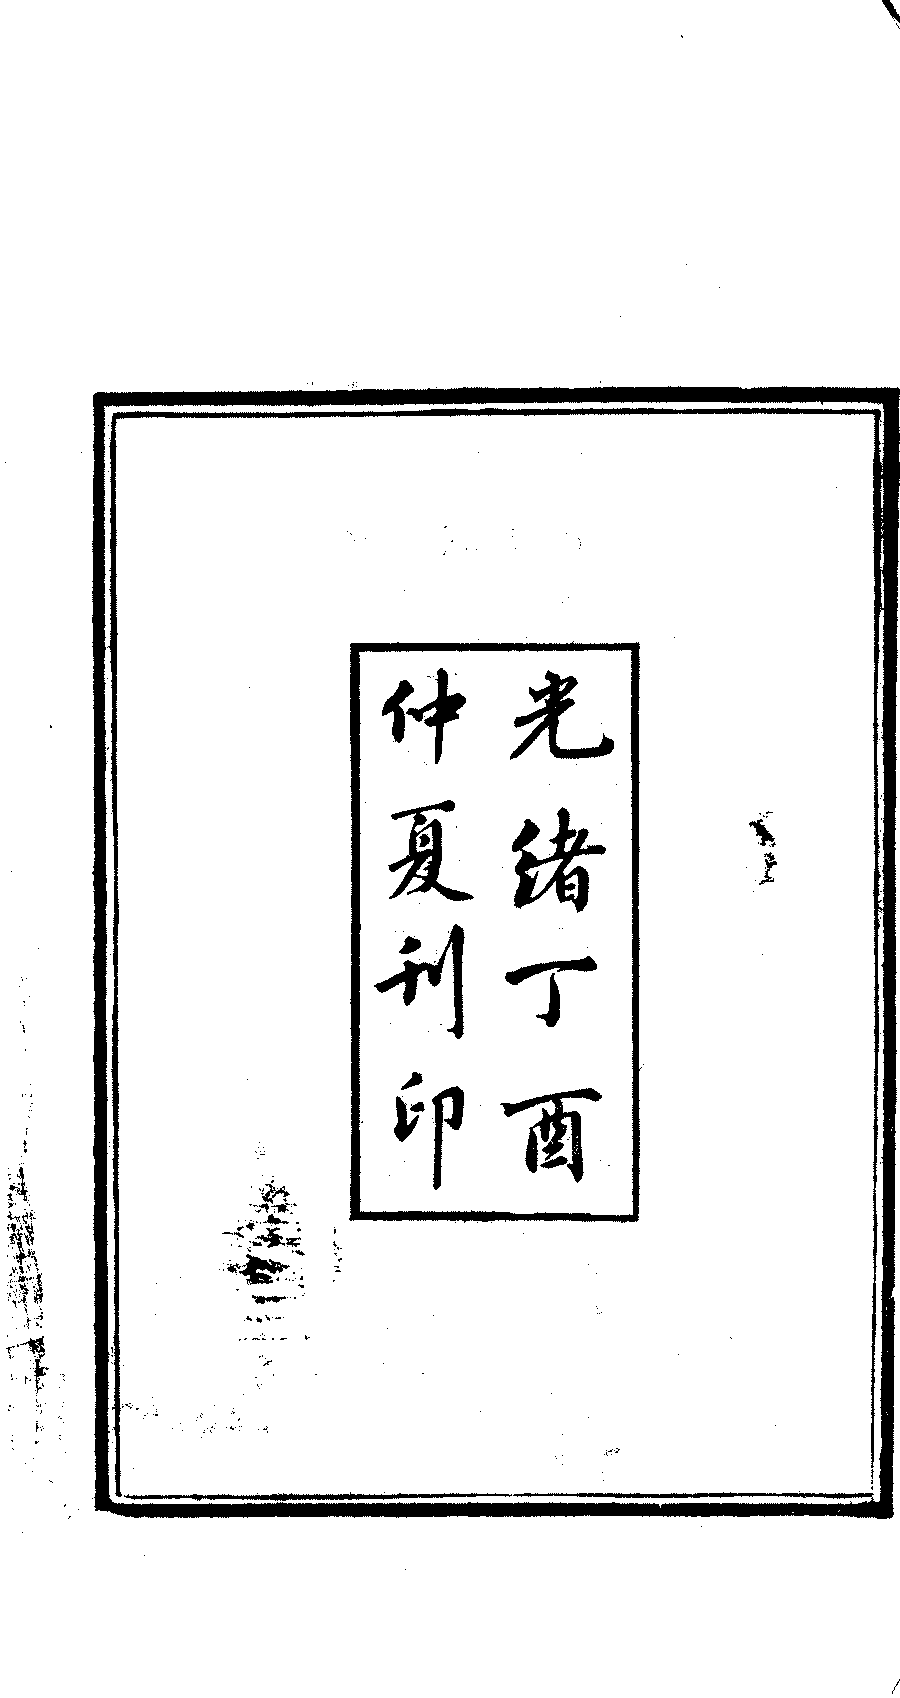 光緒丁酉
仲夏刋印